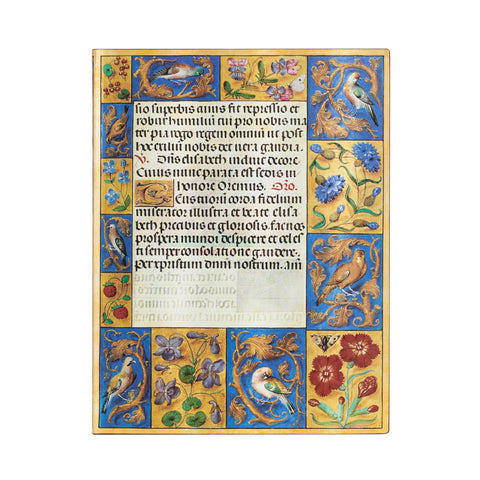 sio superbis cuius fit repressio et
robur humiliū tu pro nobis ma
ter pia rogo regem omniū ut post
hec exiliū nobis det uera gaudia.
V. Dns elisabeth induc decore
Cuius nunc parata est sedis in
honore Oremus. Oro.
Eus tuorū corda fidelium
miserator illustra et beate elisa
beth precibus et gloriosis, facnos
prospera mundi despicere et celes
ti semper consolatione gaudere.
per xpistum dnm nostrum. am